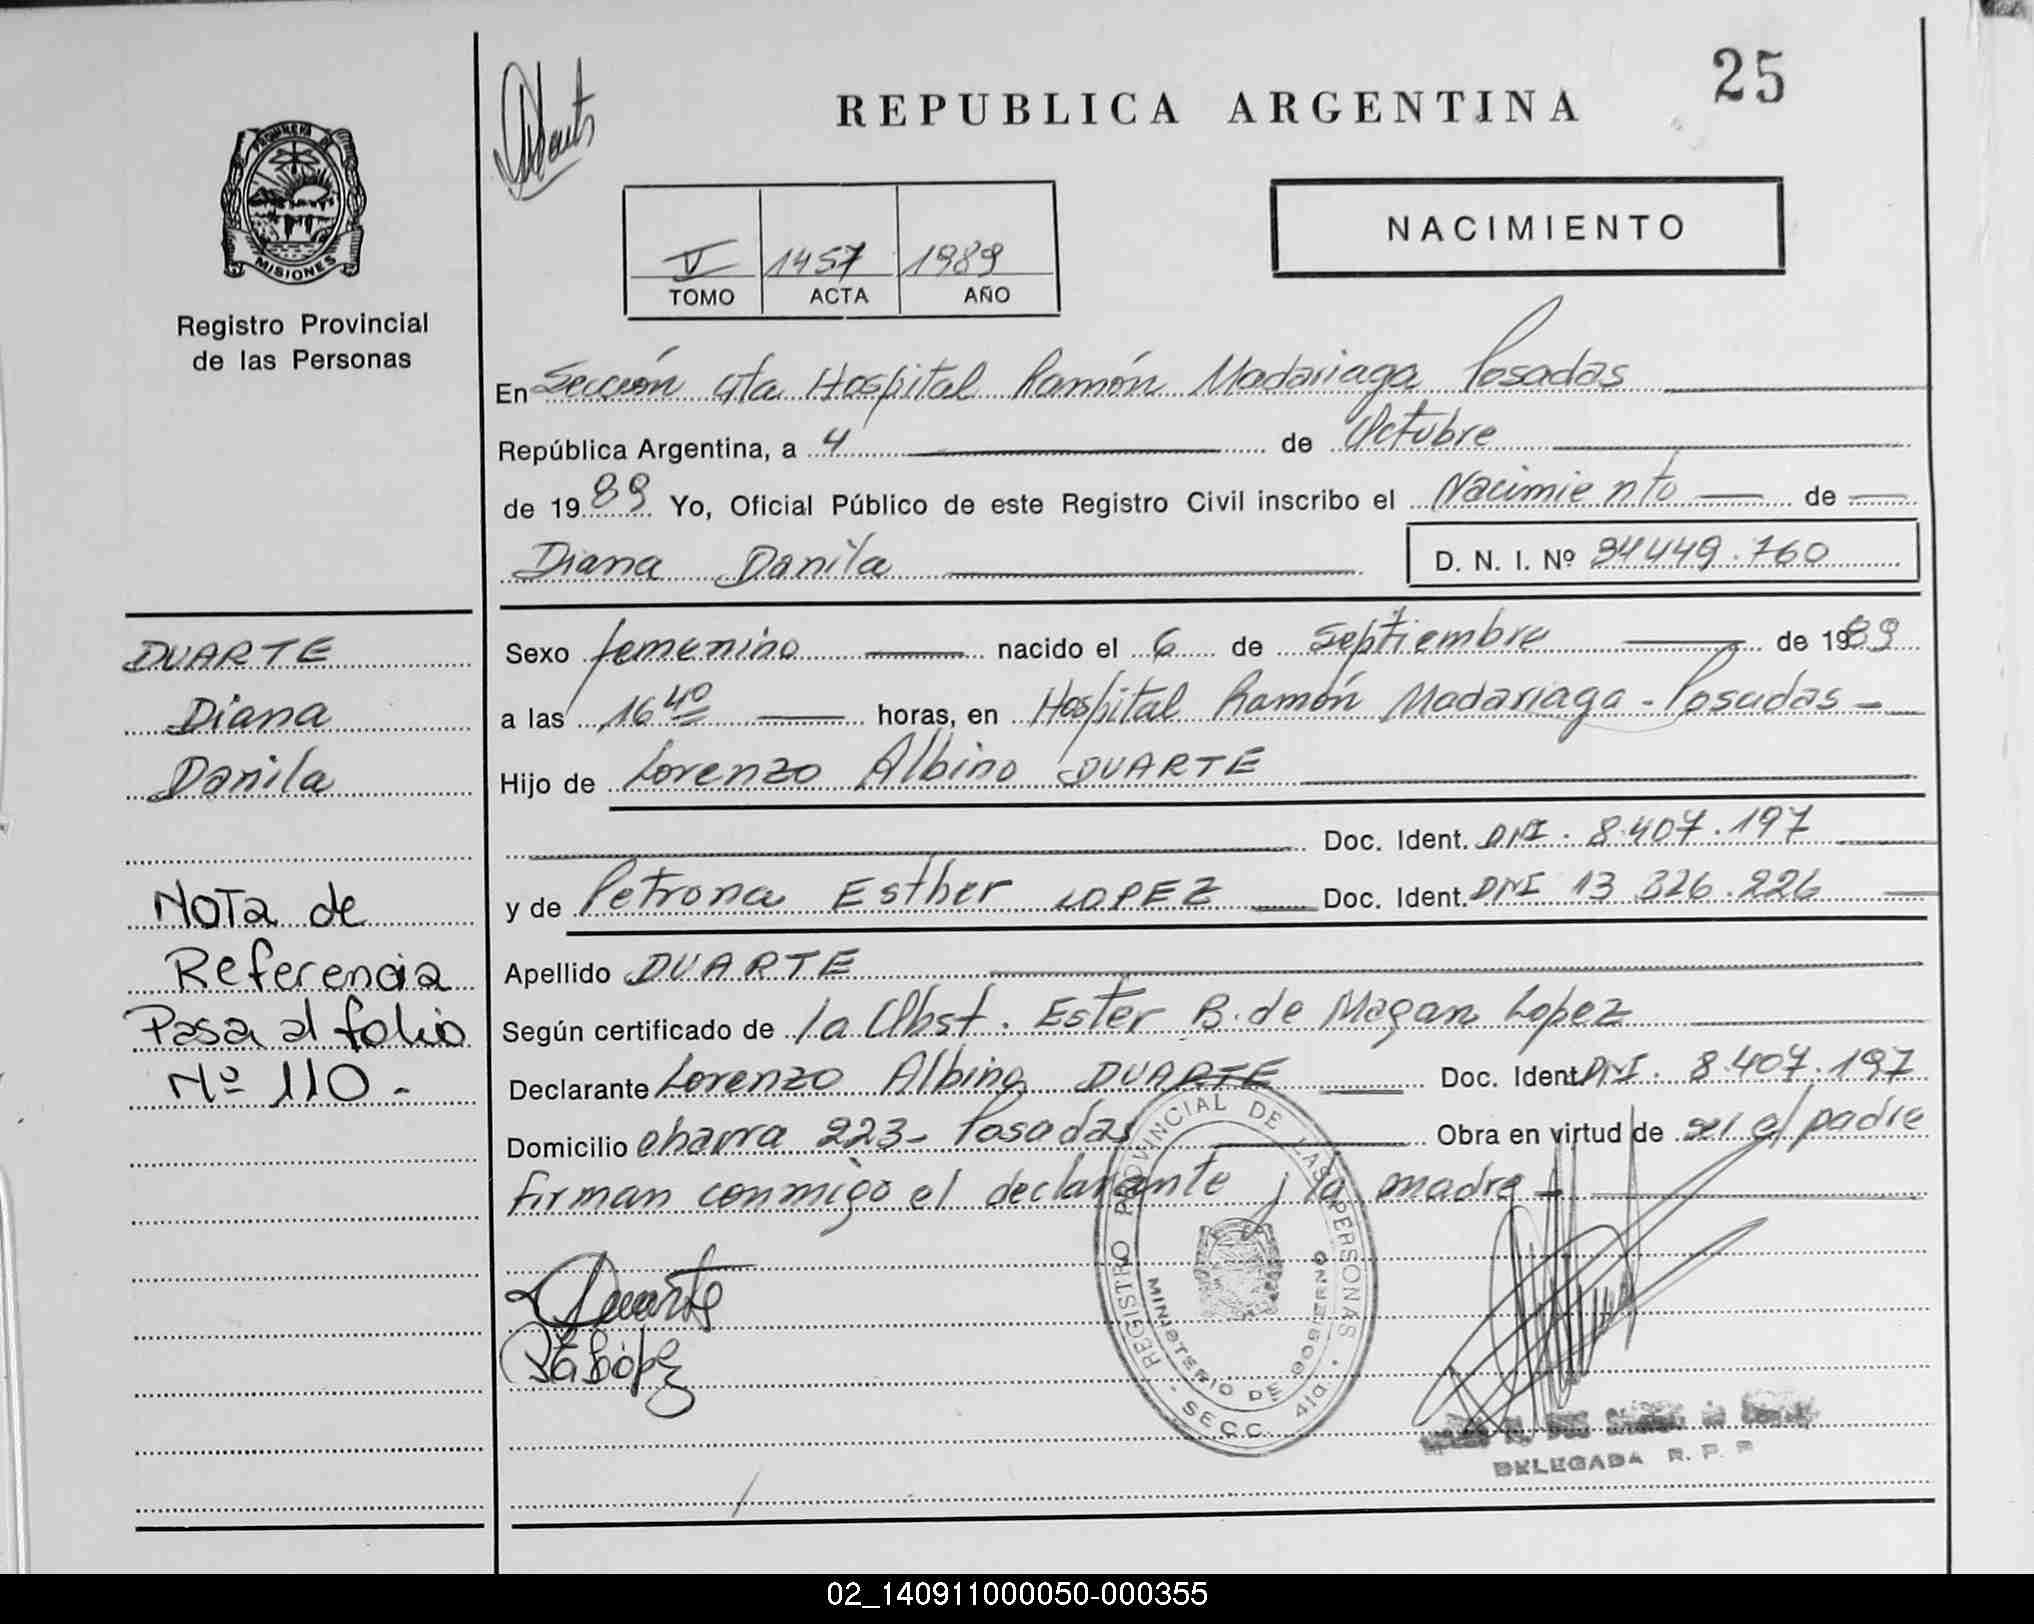 25
REPUBLICA ARGENTINA
NACIMIENTO
V 1457 1989
TOMO ACTA AÑO
PROVINCIA DE
MISIONES
Registro Provincial
de las Personas
En Sección 4ta Hospital Ramón Madariaga Posadas
República Argentina, a 4 de Octubre
de 1989 Yo, Oficial Público de este Registro Civil inscribo el Nacimiento de
Diana Danila D. N. I. Nº 34449.760
DUARTE
Diana
Danila
NOTA de
Referencia
Pasa al folio
Nº 110.-
Sexo femenino nacido el 6 de Septiembre de 1989
a las 16 40 horas, en Hospital Ramón Madariaga - Posadas -
Hijo de Lorenzo Albino DUARTE
Doc. Ident. DNI. 8.407.197
y de Petrona Esther LOPEZ Doc. Ident. DNI 13 326.226
Apellido DUARTE
Según certificado de la Obst. Ester B. de Magan Lopez
Declarante Lorenzo Albino DUARTE Doc. Ident. DNI. 8.407.197
Domicilio 223- Posadas Obra en virtud de ser el padre
Firman conmigo el declarante y la madre -
Duarte
López
REGISTRO PROVINCIAL DE LAS PERSONAS
MINISTERIO DE GOBIERNO
SECC. 4ta.
DELEGADA R. P. P
02_140911000050-000355